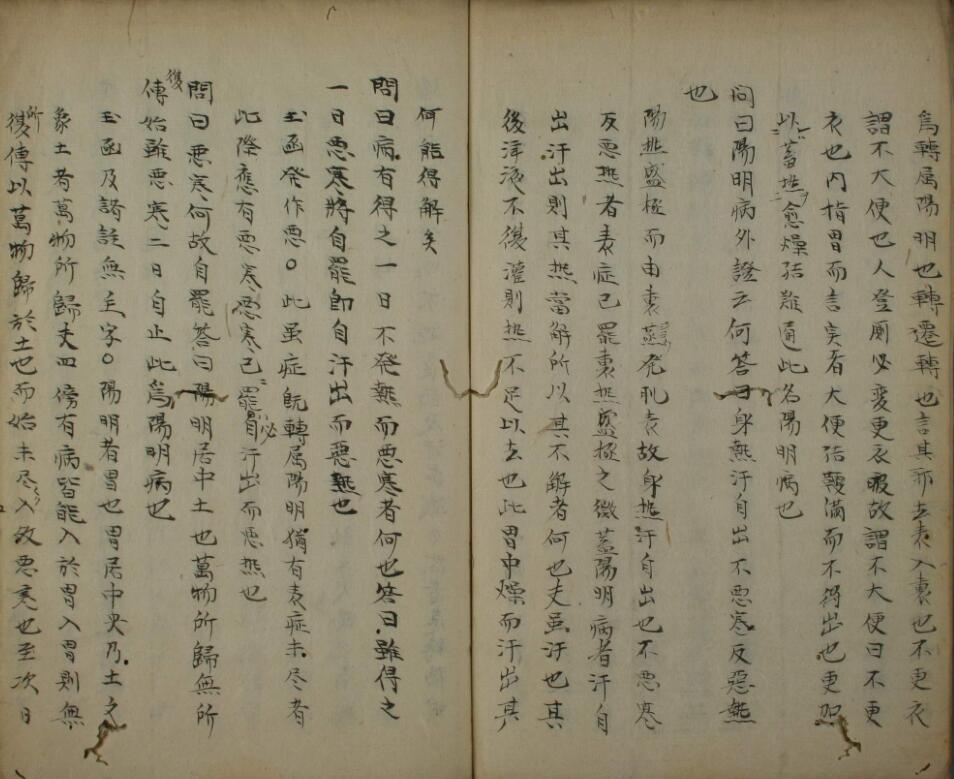 為轉属陽明也轉遷轉也言其邪去表入裏也不更衣
謂不大便也人登厠必変更衣服故謂不大便曰不更
衣也内指胃而言実者大便结鞕满而不得出也更加
以蓄热愈燥结难通此名陽明病也
问曰陽明病外證云何答曰身熱汗自出不恶寒反惡熱
也
陽热盛極而由裏蒸発肌表故身热汗自出也不恶寒
反恶热者表症已罷裏热盛極之徵蓋陽明病者汗自
出汗出則其热當解所以其不解者何也夫虽汗也其
後津液不復灌則热不足以去也此胃中燥而汗出其
何能得解矣
問曰病有得之一日不発熱而恶寒者何也答曰雖得之
一日恶寒將自罷即自汗出而惡熱也
玉函発作恶○此虽症既轉属陽明猶有表症未尽者
此際應有恶寒恶寒已罷必自汗出而恶热也
問曰恶寒何故自罷答曰陽明居中土也萬物所歸無所
復傳始雖恶寒二日自止此為陽明病也
玉函及諸註無主字○陽明者胃也胃居中央乃土之
象土者萬物所歸夫四傍有病皆能入於胃入胃則無
所復傳以萬物歸於土也而始未尽入故恶寒也至次日